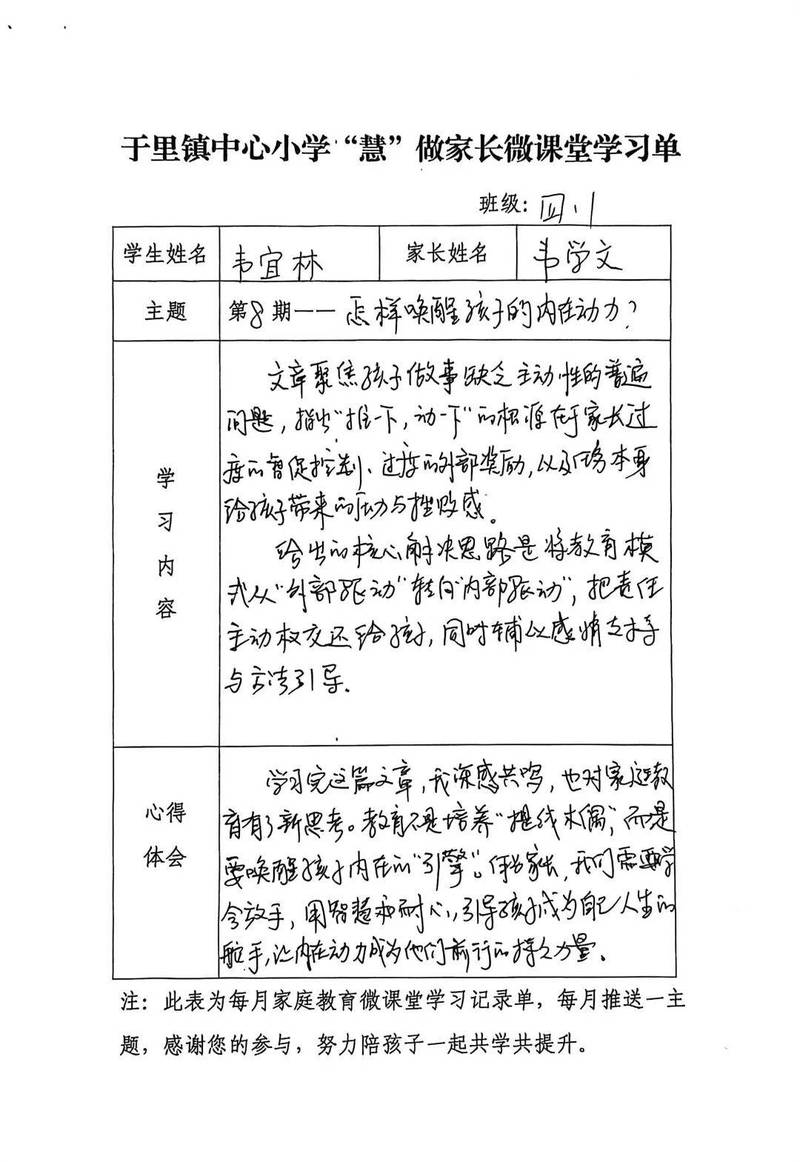 于里镇中心小学“慧”做家长微课堂学习单
班级：四.1
学生姓名 韦宜林 家长姓名 韦学文
主题 第8期——怎样唤醒孩子的内在动力？
学习内容
文章聚焦孩子做事缺乏主动性的普遍
问题，指出“推一下，动一下”的根源在于家长过
度的督促控制、过度的外部奖励，以及任务本身
给孩子带来的压力与挫败感。
给出的核心解决思路是将教育模
式从“外部驱动”转向“内部驱动”，把责任
主动权交还给孩子，同时辅以感情支持
与方法引导.
心得
体会
学习完这篇文章，我深感共鸣，也对家庭教
育有了新思考。教育不是培养“提线木偶”，而是
要唤醒孩子内在的“引擎”。作为家长，我们需要学
会放手，用智慧和耐心，引导孩子成为自己人生的
舵手，让内在动力成为他们前行的持久力量。
注：此表为每月家庭教育微课堂学习记录单，每月推送一主
题，感谢您的参与，努力陪孩子一起共学共提升。